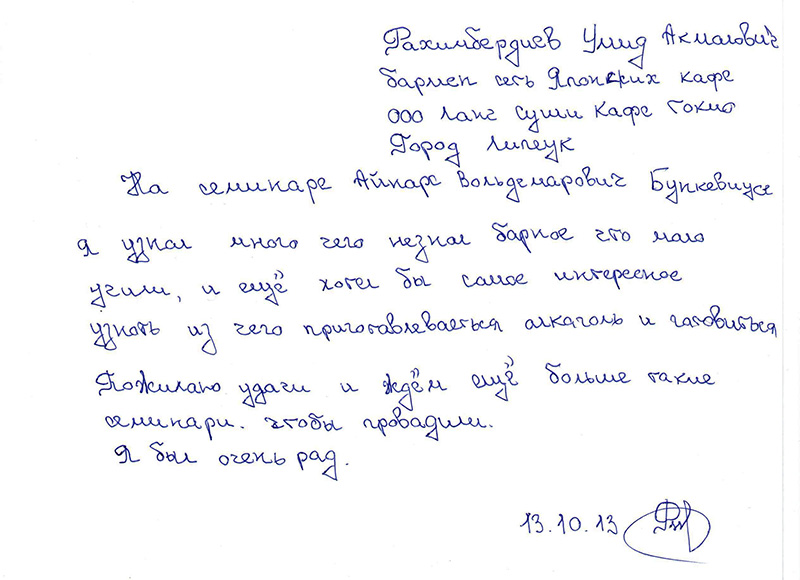 Рахимбердиев Умид Акмалович
бармен сеть Японских кафе
ООО Ланч суши кафе Токио
Город Липецк
На семинаре Айнарс Вольдемарович Бункевиусе
я узнал много чего незнал барное что мало
учили, и ещё хотел бы самое интересное
узнать из чего приготавлеваеться алкаголь и гатовиться
Пожилаю удачи и ждём ещё больше такие
семинари. чтобы провадили.
Я был очень рад.
13.10.13